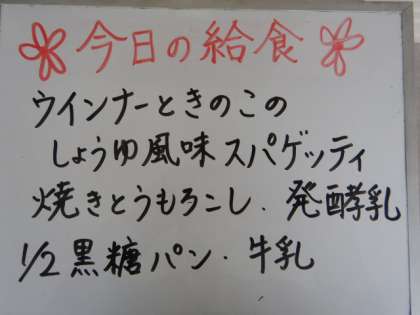 今日の給食
ウインナーときのこの
しょうゆ風味スパゲッティ
焼きとうもろこし・発酵乳
1/2黒糖パン・牛乳